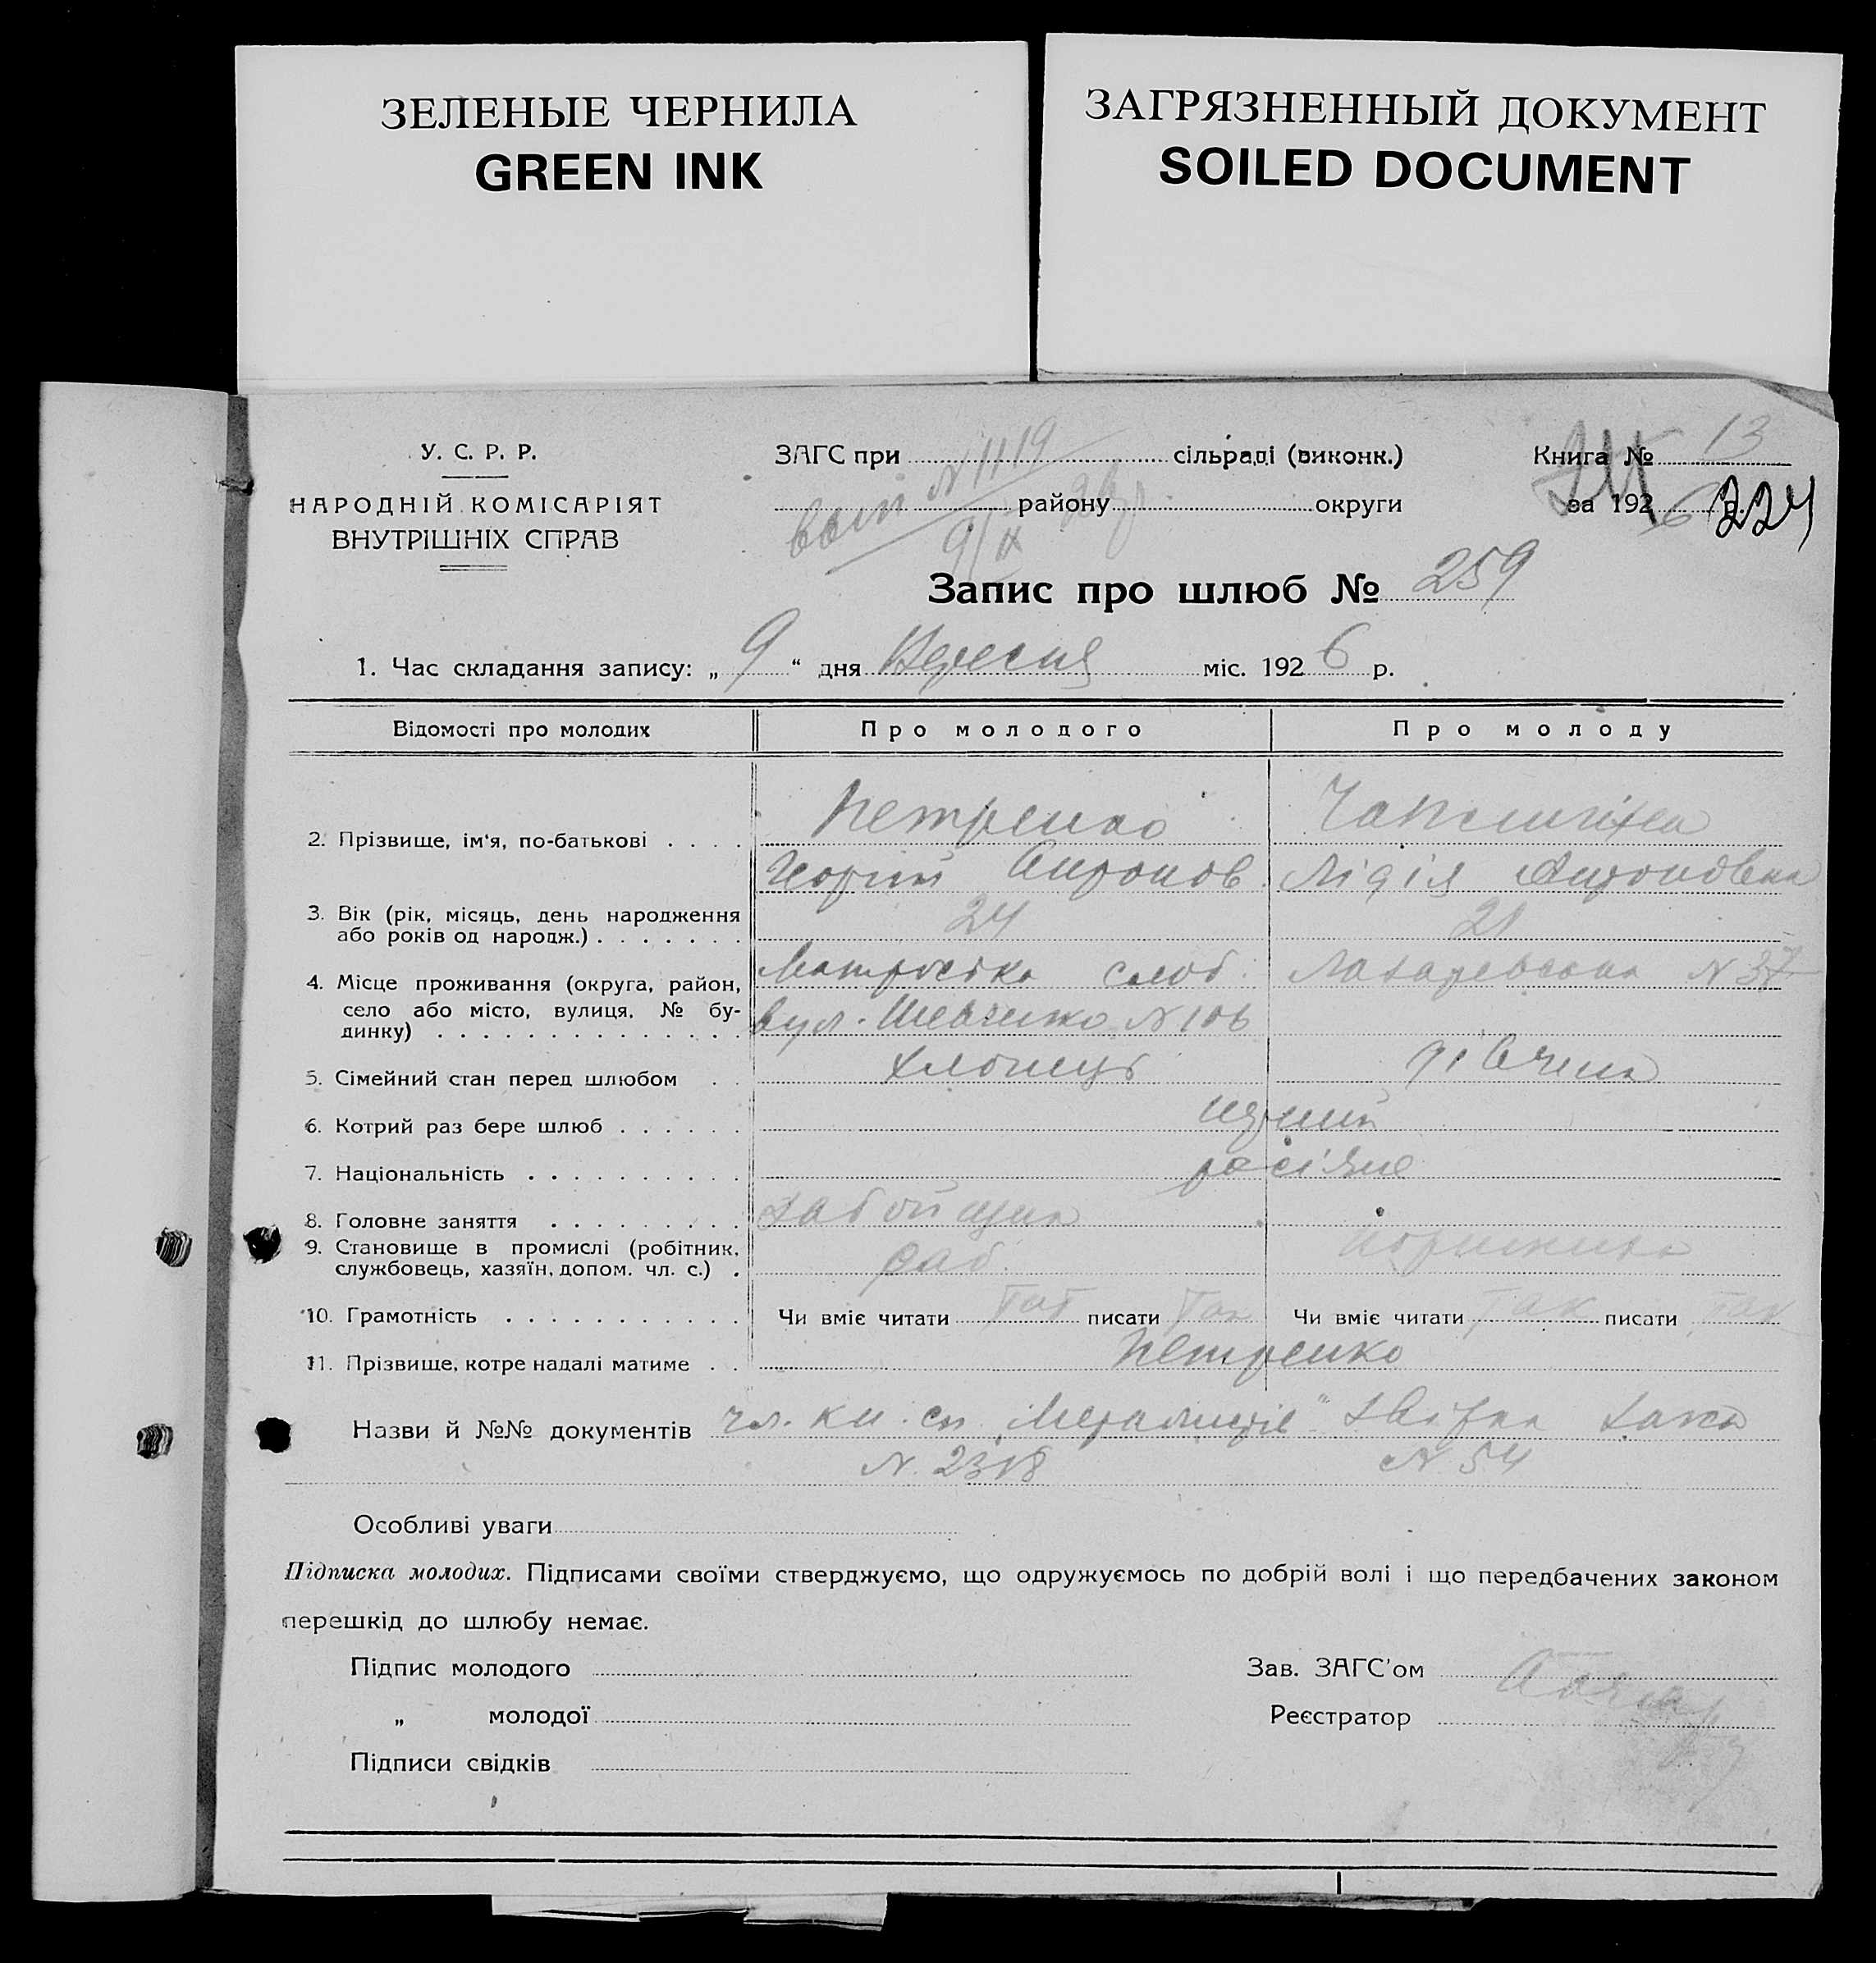 ЗЕЛЕНЫЕ ЧЕРНИЛА
GREEN INK
ЗАГРЯЗНЕННЫЙ ДОКУМЕНТ
SOILED DOCUMENT
У. С. Р. Р.
НАРОДНІЙ КОМІСАРІЯТ
ВНУТРІШНІХ СПРАВ
ЗАГС при сільраді (виконк.)
району округи
N 1119
9/IX
Книга № 13
за 1926 р.
224
Запис про шлюб № 259
1. Час складання запису: „ 9 “ дня Вересня міс. 1926 р.
Відомості про молодих Про молодого Про молоду
2. Прізвище, ім'я, по-батькові . . . . Петренко
Георгій Лідія
3. Вік (рік, місяць, день народження
або років од народж.) . . . . . . . 24 21
4. Місце проживання (округа, район, слоб. Лазаревська N 37
село або місто, вулиця, № бу-
динку) . . . . . . . . . . . . . . вул. Шевченко N 106
5. Сімейний стан перед шлюбом . . хлопець дівчина
6. Котрий раз бере шлюб . . . . . . перший
7. Національність . . . . . . . . . . росіяне
8. Головне заняття . . . . . . . . .
9. Становище в промислі (робітник,
службовець, хазяїн, допом. чл. с.) . раб.
10. Грамотність . . . . . . . . . . . Чи вміє читати так писати так Чи вміє читати так писати так
11. Прізвище, котре надалі матиме . . Петренко
Назви й №№ документів чл. кн. сп. „Металистів“
N 2318 N 54
Особливі уваги
Підписка молодих. Підписами своїми стверджуємо, що одружуємось по добрій волі і що передбачених законом
перешкід до шлюбу немає.
Підпис молодого Зав. ЗАГС'ом
„ молодої Реєстратор
Підписи свідків